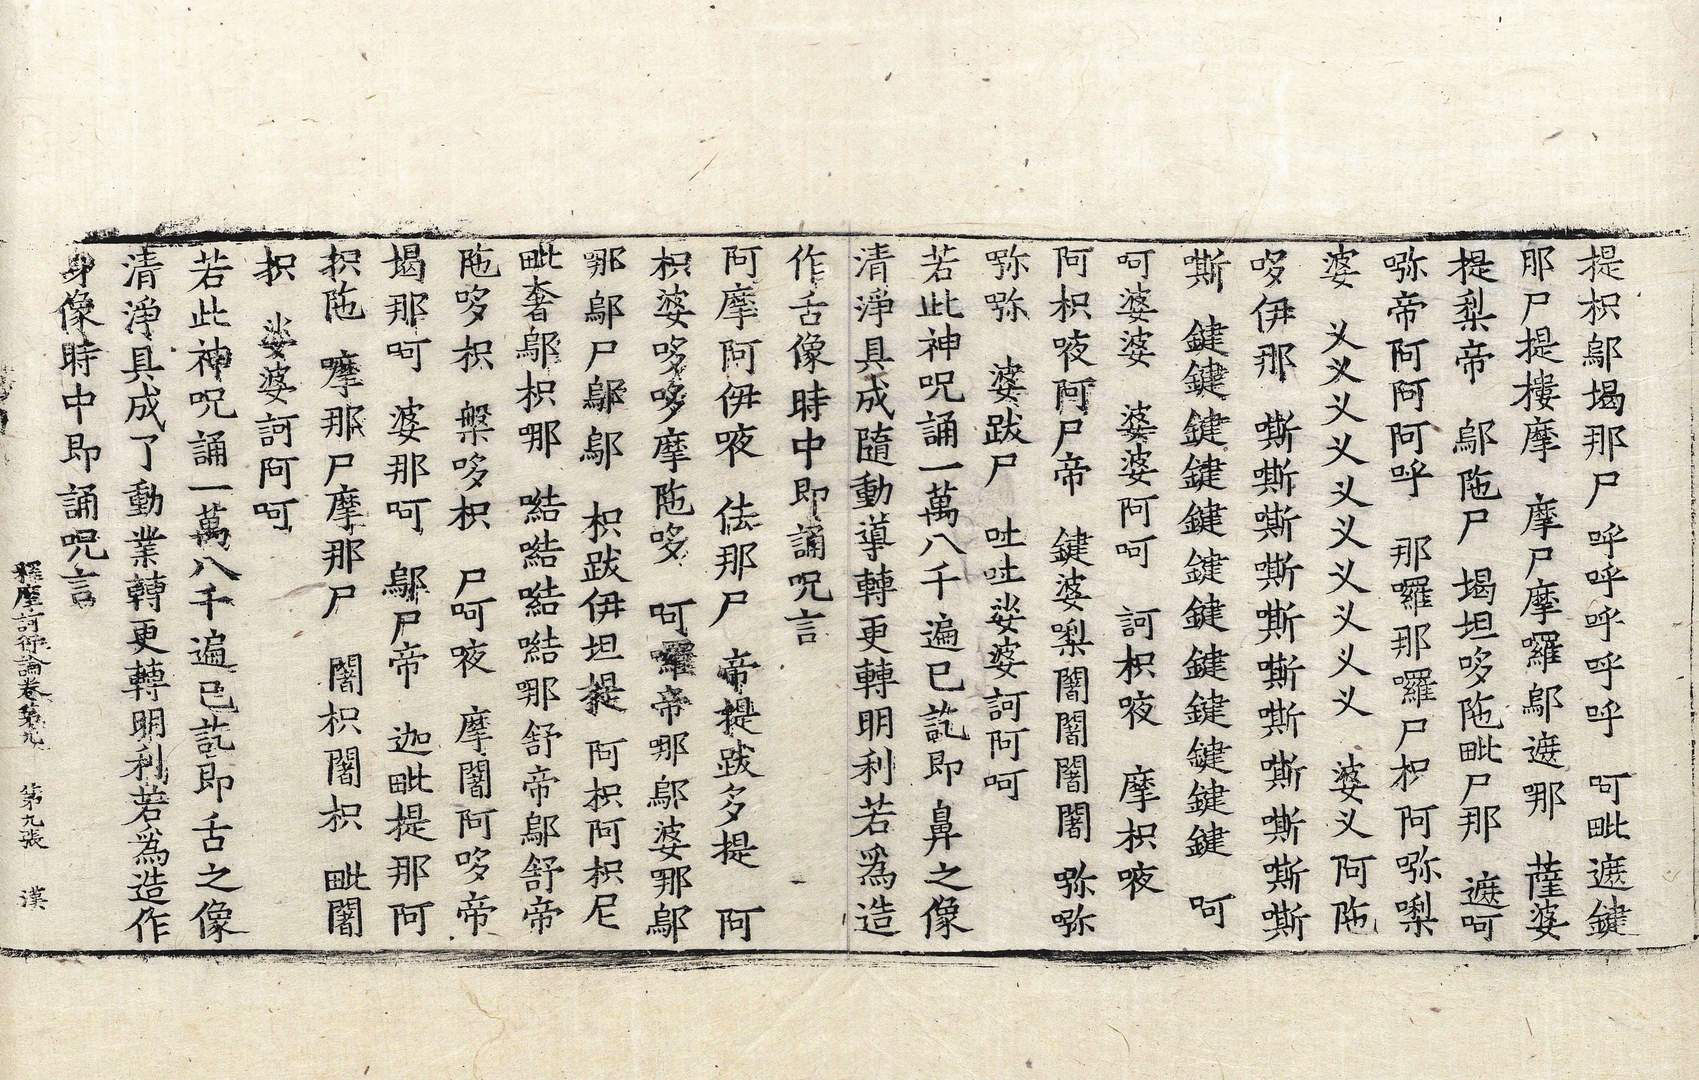 提枳鄔堨那尸 呼呼呼呼呼 呵毗遮鍵
那尸提樓摩 摩尸摩囉鄔遮哪 薩婆
提梨帝 鄔陁尸 堨坦哆陁毗尸那 遮呵
嚩帝阿阿阿呼 那囉那囉尸枳阿嚩㗚
婆 义义义义义义义义义义 婆义阿陁
哆伊那 嘶嘶嘶嘶嘶嘶嘶嘶嘶嘶嘶
嘶 鍵鍵鍵鍵鍵鍵鍵鍵鍵鍵鍵鍵 呵
呵婆婆 婆婆阿呵 訶枳㖡 摩枳㖡
阿枳㖡阿尸帝 鍵婆㗚闍闍闍闍
婆跋尸 吐吐娑婆訶阿呵
若此神呪誦一萬八千遍已訖即鼻之像
清淨具成隨動導轉更轉明利若為造
作舌像時中即誦呪言
阿摩阿伊㖡 佉那尸 帝提跋多提 阿
枳婆哆哆摩陁哆 呵囉帝哪鄔婆哪鄔
哪鄔尸鄔鄔 枳跋伊坦提 阿枳阿枳尼
毗奢鄔枳哪 㗌㗌㗌㗌哪舒帝鄔舒帝
陁哆枳 槃哆枳 尸呵㖡 摩闍阿哆帝
堨那呵 婆那呵 鄔尸帝 迦毗提那阿
枳陁 嚤那尸摩那尸 闍枳闍枳 毗闍
枳 娑婆訶阿呵
若此神呪誦一萬八千遍已訖即舌之像
清淨具成了動業轉更轉明利若為造作
身像時中即誦呪言
釋摩訶衍論卷第九 第九張 漢